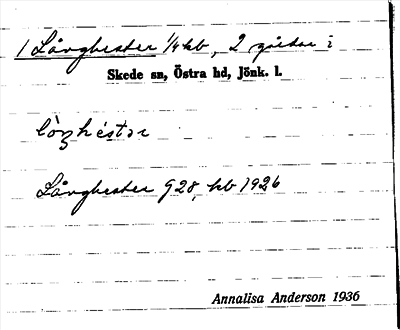 1 Långhester 1/4 hb, 2 gårdar i
Skede sn, Östra hd, Jönk. l.
Långhester 928, hb 1926
Annalisa Anderson 1936